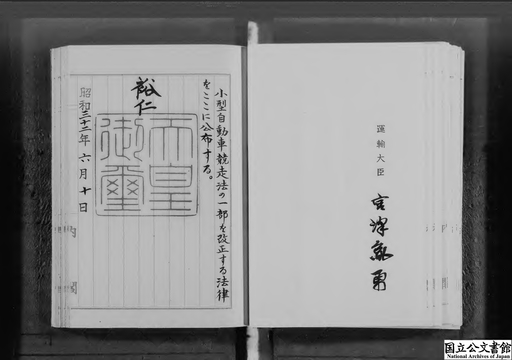 運輸大臣
宮澤胤勇
小型自動車競走法の一部を改正する法律
をここに公布する。
裕仁
天皇御璽
昭和三十二年六月十日
国立公文書館
National Archives of Japan